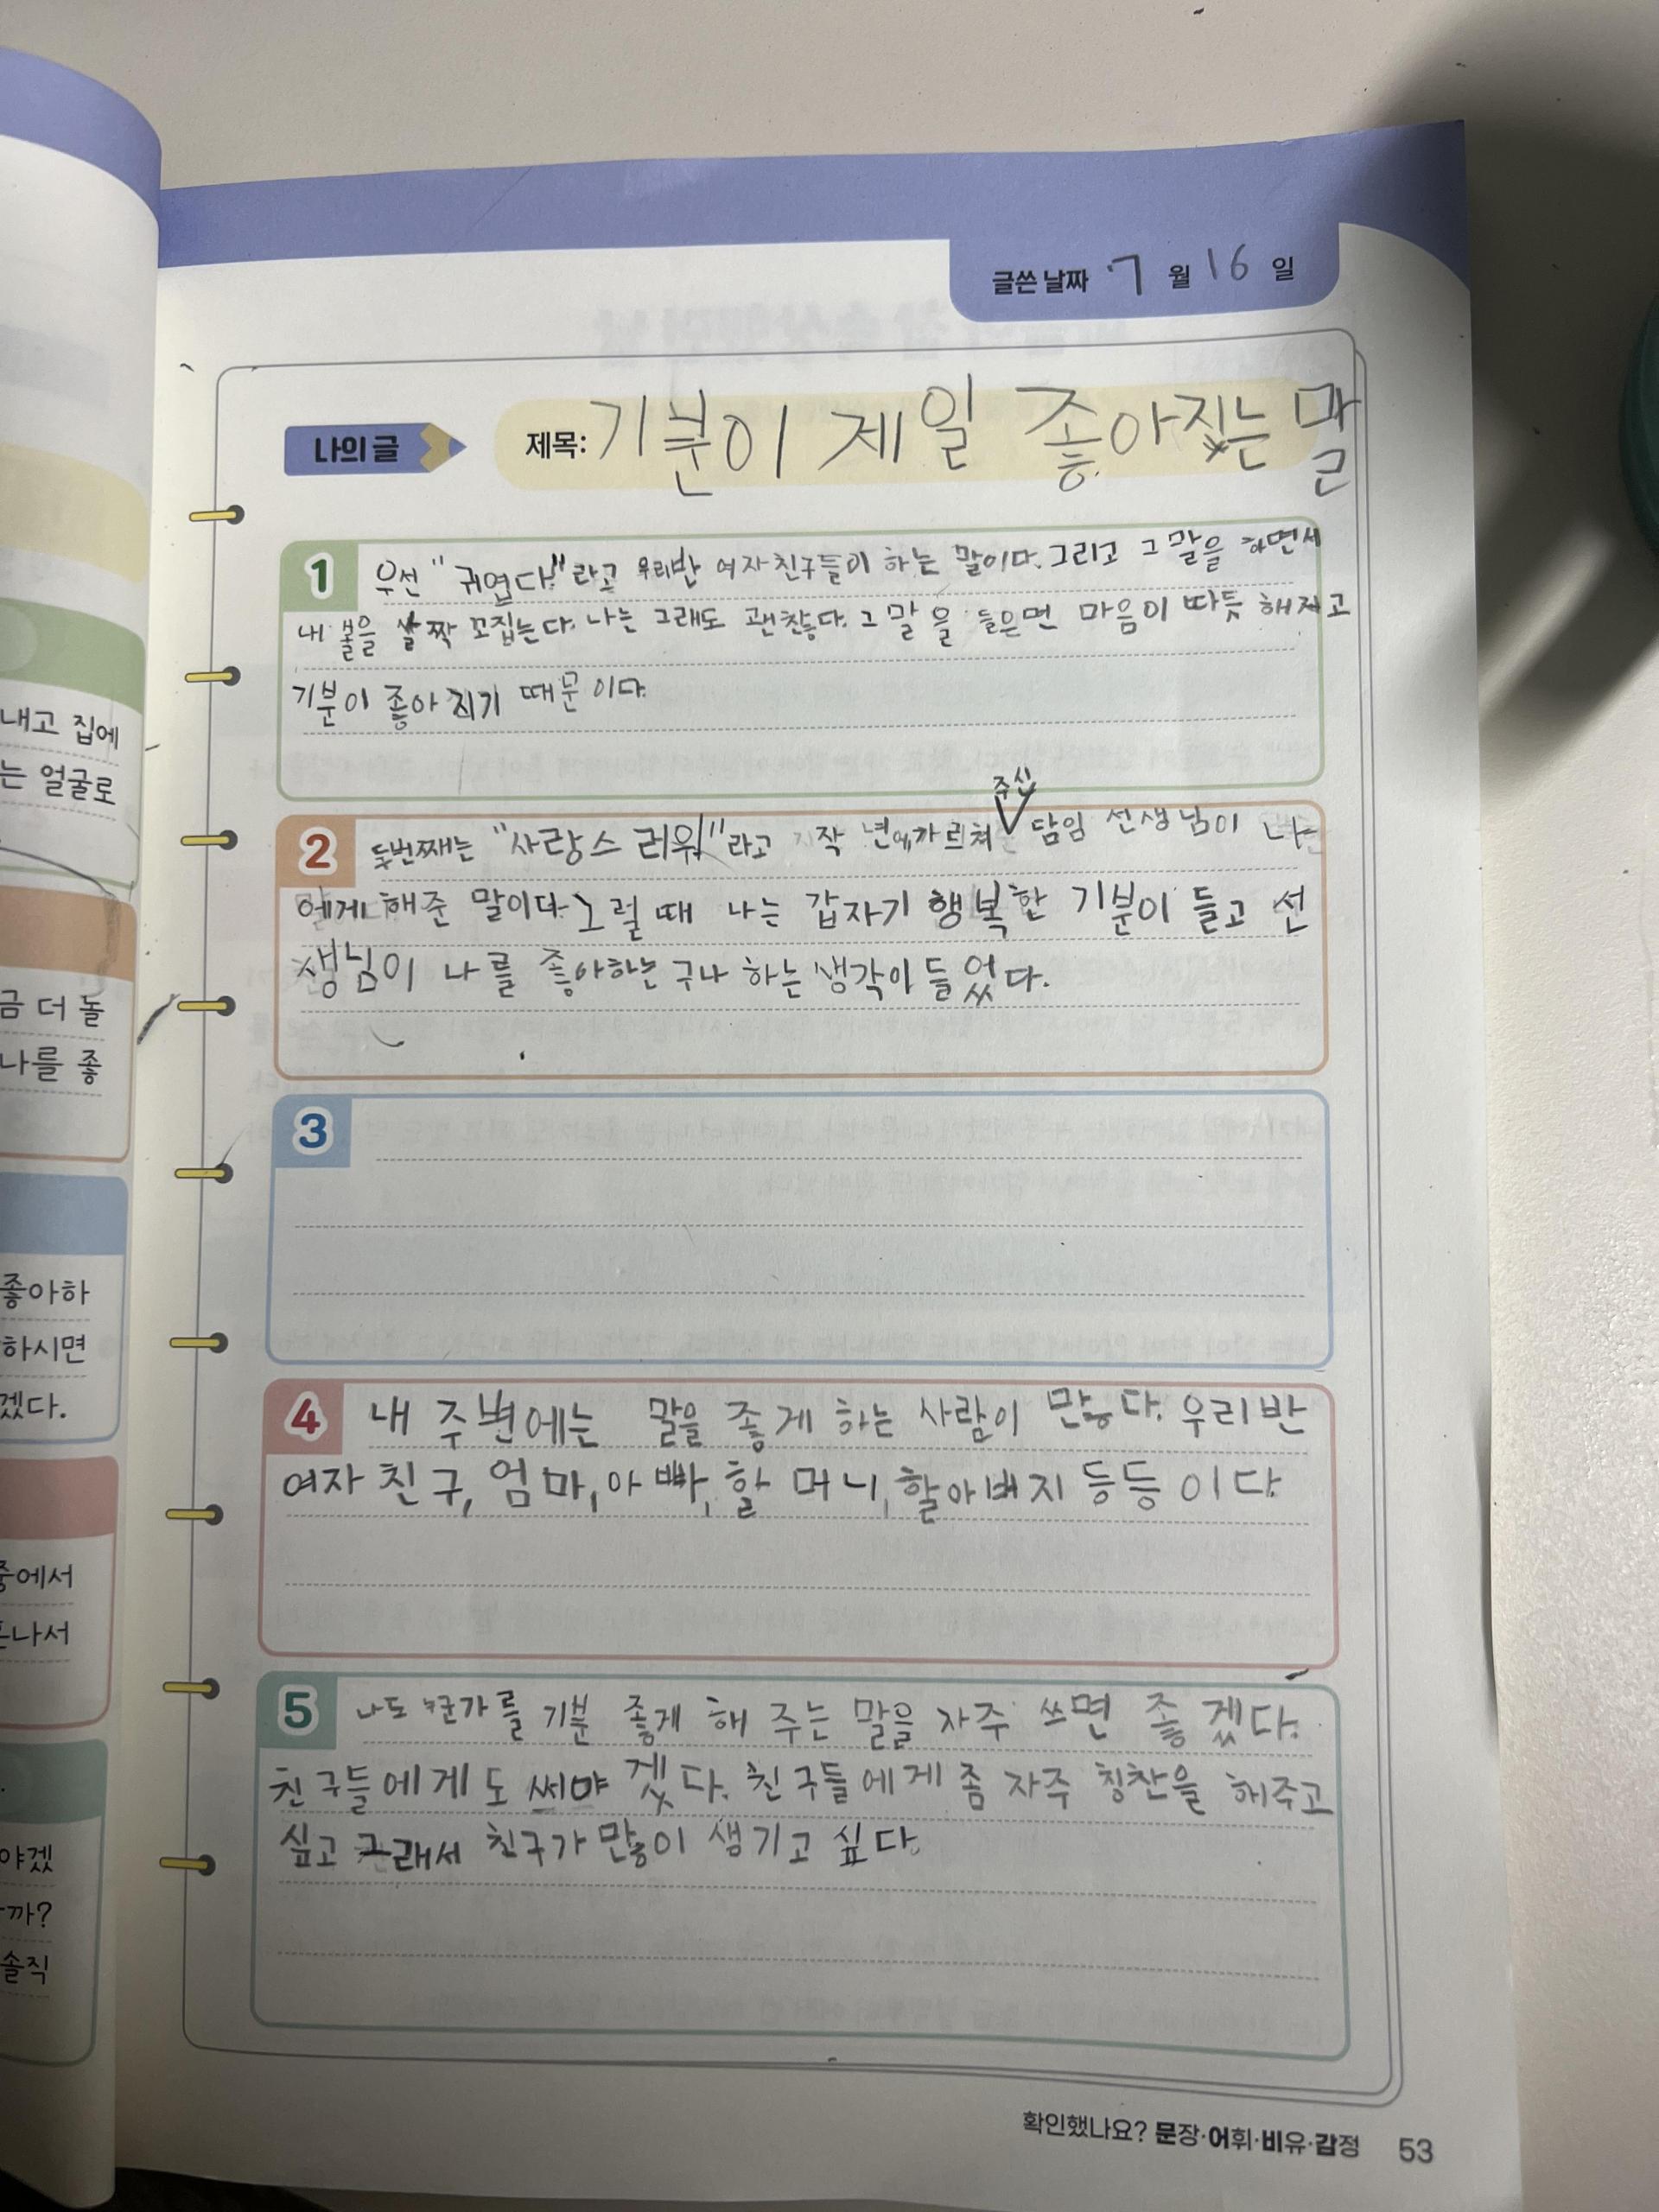 내고 집에
는 얼굴로
금 더 돌
나를 좋
좋아하
하시면
겠다.
중에서
나서
야겠
까?
솔직
글쓴 날짜 7 월 16 일
나의 글 제목: 기분이 제일 좋아짔는 말
1 우선 "귀엽다"라고 우리반 여자친구들이 하는 말이다. 그리고 그 말을 하면서
내 볼을 살짝 꼬집는다. 나는 그래도 괜찮다. 그 말을 들으면 마음이 따듯해지고
기분이 좋아지기 때문이다.
주신
2 두번째는 "사랑스러워"라고 작년에가르쳐 담임 선생님이 나
에게 해준 말이다. 그럴 때 나는 갑자기 행복한 기분이 들고 선
생님이 나를 좋아하는구나 하는 생각이 들었다.
3
4 내 주변에는 말을 좋게 하는 사람이 많다. 우리반
여자친구, 엄마, 아빠, 할머니, 할아버지 등등이다.
5 나도 를 기분 좋게 해 주는 말을 자주 쓰면 좋겠다.
친구들에게도 써야겠다. 친구들에게 좀 자주 칭찬을 해주고
싶고 그래서 친구가 많이 생기고 싶다.
확인했나요? 문장·어휘·비유·감정 53